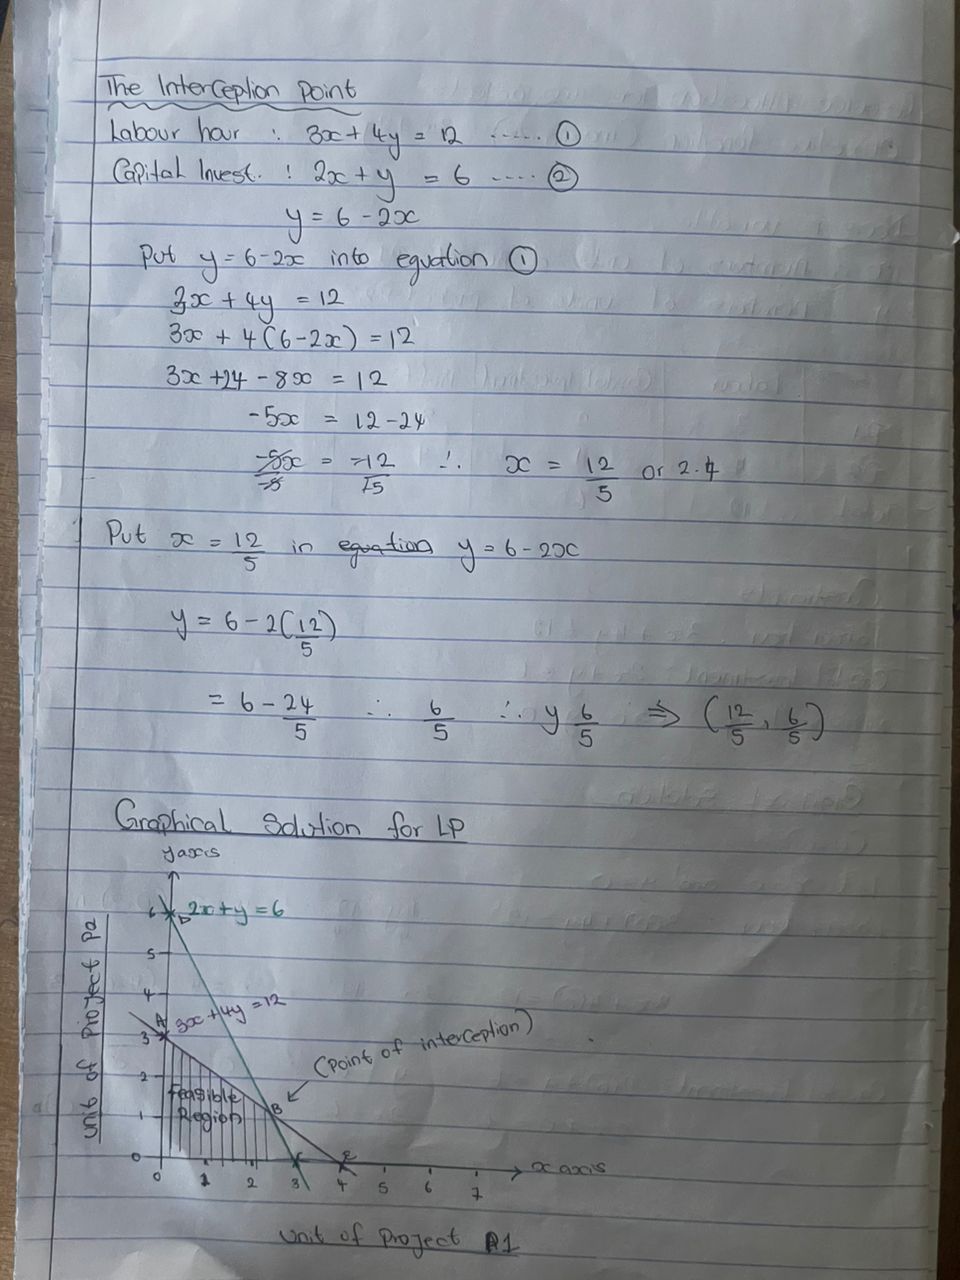 The Interception Point
Labour hour : 3x + 4y = 12 ...... ①
Capital Invest. : 2x + y = 6 .... ②
y = 6 - 2x
Put y = 6 - 2x into equation ①
3x + 4y = 12
3x + 4(6 - 2x) = 12
3x + 24 - 8x = 12
-5x = 12 - 24
-5x/-5 = -12/-5 ∴ x = 12/5 or 2.4
Put x = 12/5 in equation y = 6 - 2x
y = 6 - 2(12/5)
= 6 - 24/5 ∴ 6/5 ∴ y 6/5 ⇒ (12/5, 6/5)
Graphical Solution for LP
y axis
6 D 2x + y = 6
5
4
A 3x + 4y = 12
3
(Point of interception)
2
Feasible
B
1
Region
0
C E x axis
0 1 2 3 4 5 6 7
unit of Project P2
unit of Project P1